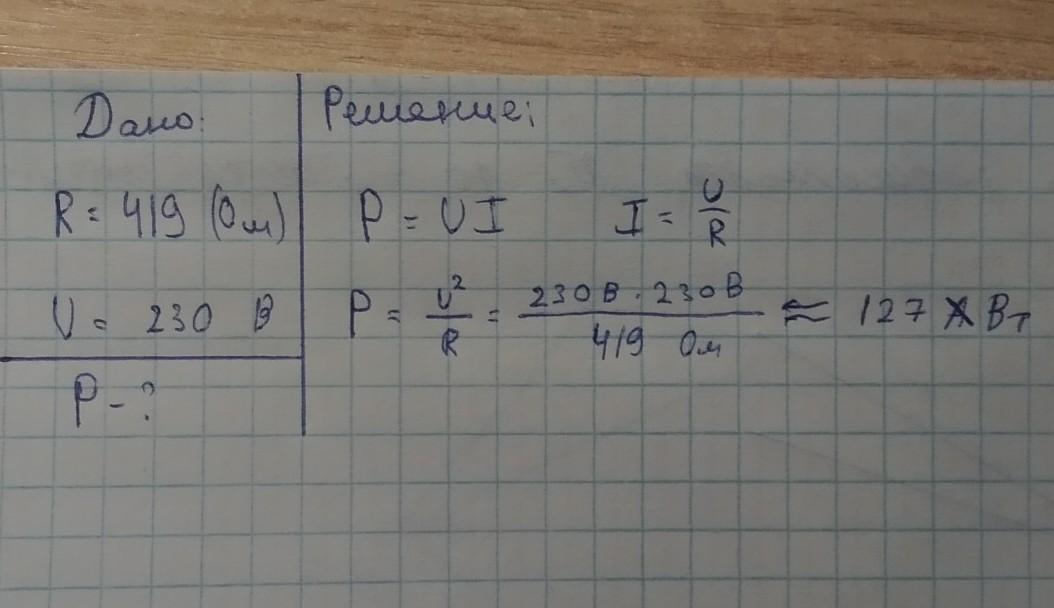 Дано:
R = 419 (Ом)
U = 230 В
P - ?
Решение:
P = UI I = U/R
P = U²/R = 230 В · 230 В / 419 Ом ≈ 127 Вт